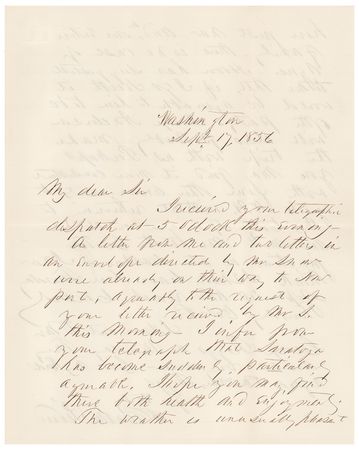 Washington
Sept 17, 1856
My dear Sir
I received your telegraphic
dispatch at 5 oclock this evening—
A letter from me and two letters in
an envelope directed by Mr
were already on their way to New
port, agreeably to the request of
your letter received by Mr S.
this morning— I infer from
your telegraph that Saratoga
has become suddenly particularly
agreeable. I hope you may find
there both health and enjoyment.
The weather is unusually pleasant